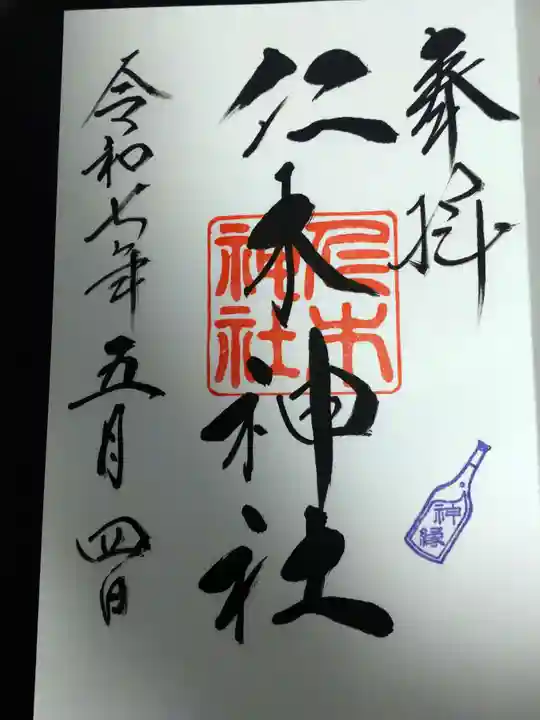 奉拝
仁木神社
仁木
神社
神縁
令和七年五月四日